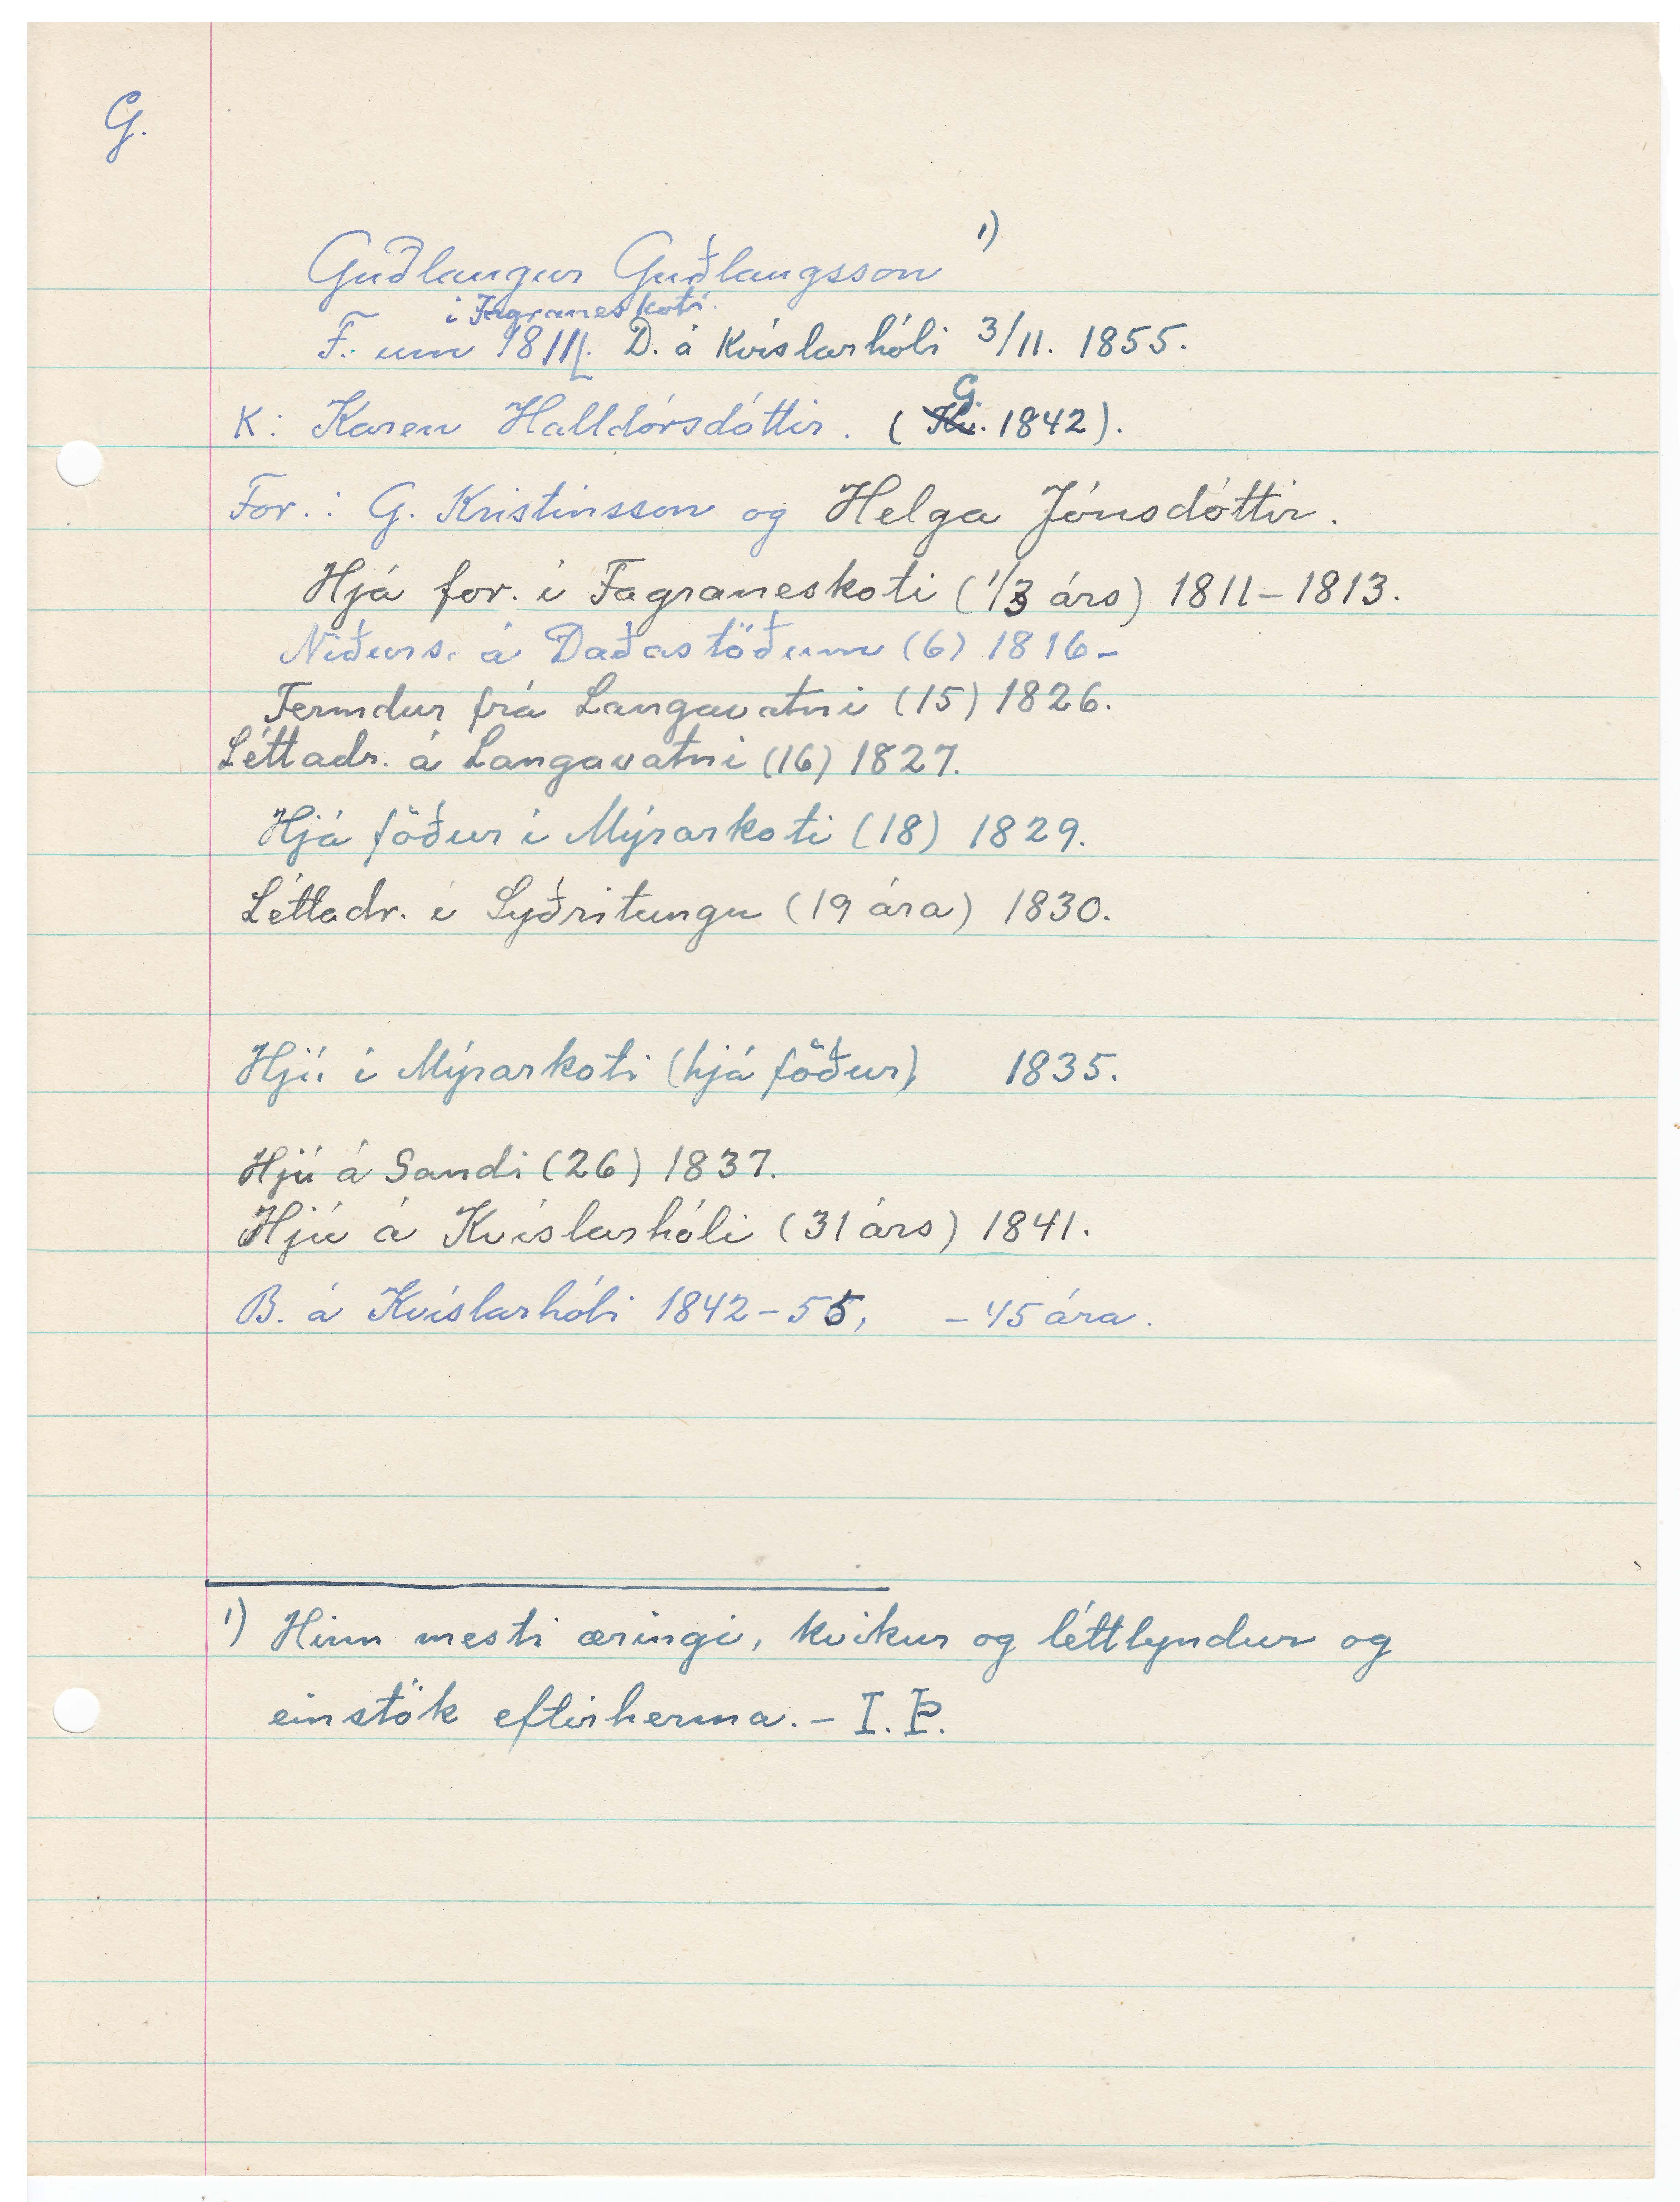 G.
Guðlaugur Guðlaugsson 1)
í Fagraneskoti.
F. um 1811. D. á Kvíslarhóli 3/11. 1855.
G.
K: Karen Halldórsdóttir. ( 1842).
For.: G. Kristinsson og Helga Jónsdóttir.
Hjá for. í Fagraneskoti (1/3 árs) 1811–1813.
Niðurs. á Daðastöðum (6) 1816–
Fermdur frá Langavatni (15) 1826.
Léttadr. á Langavatni (16) 1827.
Hjá föður í Mýrarkoti (18) 1829.
Léttadr. í Syðritungu (19 ára) 1830.
Hjú í Mýrarkoti (hjá föður) 1835.
Hjú á Sandi (26) 1837.
Hjú á Kvíslarhóli (31 árs) 1841.
B. á Kvíslarhóli 1842–55, –45 ára.
1) Hinn mesti æringi, kvikur og léttlyndur og
einstök eftirherma. – I. Þ.